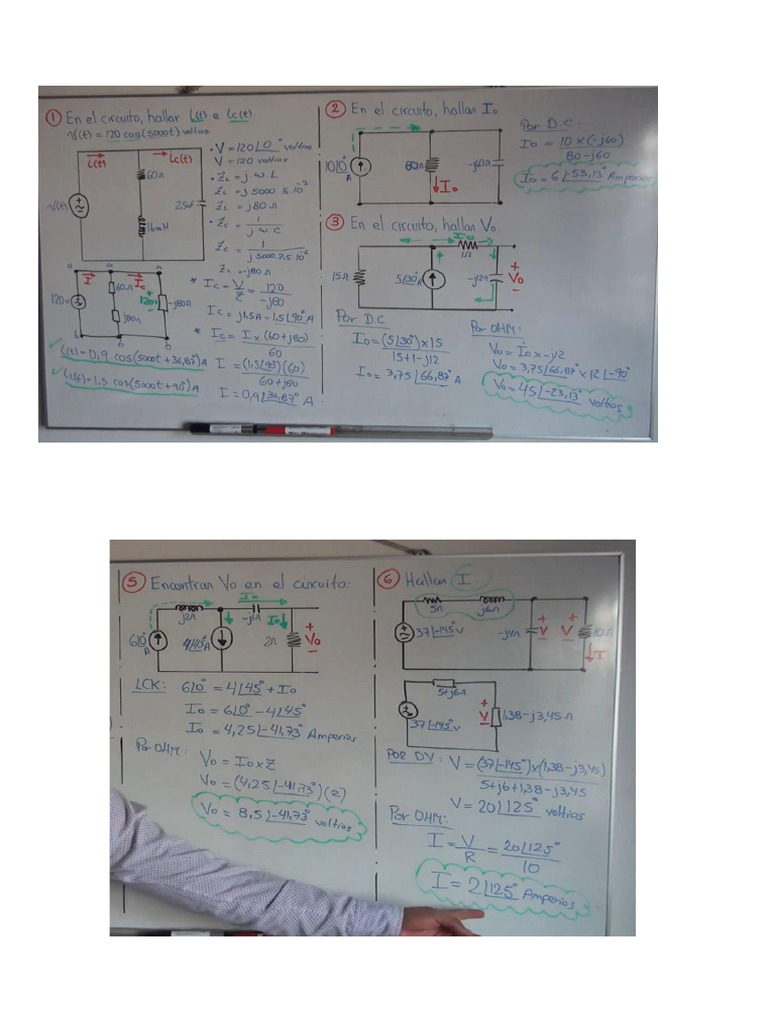 ① En el circuito, hallar i(t) e ic(t).
v(t) = 120 cos(5000t) voltios
i(t)
ic(t)
60Ω
v(t)
2,5uf
16mH
• V = 120∠0° voltios
V = 120 voltios
• ZL = j.w.L
ZL = j 5000 16.10⁻³
ZL = j80Ω
• Zc = 1 / j.w.C
Zc = 1 / j5000.2,5.10⁻⁶
Zc = -j80Ω
a a a
I
Ic
120v
60Ω
120v
-j80Ω
j80Ω
b b b
* Ic = V/Z = 120 / -j80
Ic = j1,5A = 1,5∠90° A
* Ic = I x (60+j80) / 60
I = (1,5∠90°)(60) / 60+j80
I = 0,9∠36,87° A
i(t) = 0,9 cos(5000t+36,87°)A
ic(t) = 1,5 cos(5000t+90°)A
② En el circuito, hallar Io.
10∠0° A
80Ω
-j60Ω
Io
Por D.C:
Io = 10 x (-j60) / 80-j60
Io = 6∠-53,13° Amperios
③ En el circuito, hallar Vo.
Io
1Ω
15Ω
5∠30° A
-j12Ω
+
Vo
-
Por D.C
Io = (5∠30°) x 15 / 15+1-j12
Io = 3,75∠66,87° A
Por OHM:
Vo = Io x -j12
Vo = 3,75∠66,87° x 12∠-90°
Vo = 45∠-23,13° voltios
⑤ Encontrar Vo en el circuito:
Io
j2Ω
-j1Ω
Io
6∠0° A
4∠45° A
2Ω
+
Vo
-
LCK: 6∠0° = 4∠45° + Io
Io = 6∠0° - 4∠45°
Io = 4,25∠-41,73° Amperios
Por OHM:
Vo = Io x Z
Vo = (4,25∠-41,73°)(2)
Vo = 8,5∠-41,73° voltios
⑥ Hallar I.
5Ω
j6Ω
37∠-145° V
-j4Ω
+
V
-
+
V
-
10Ω
I
5+j6Ω
37∠-145° V
+
V
-
1,38-j3,45Ω
POR DV: V = (37∠-145°) x (1,38-j3,45) / 5+j6+1,38-j3,45
V = 20∠125° voltios
Por OHM:
I = V/R = 20∠125° / 10
I = 2∠125° Amperios